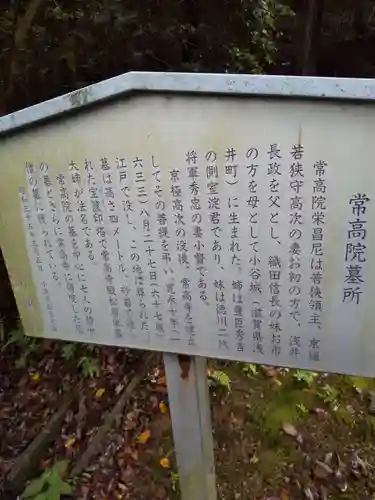 常高院墓所
常高院栄昌尼は若狭領主、京極
若狭守高次の妻お初の方で、浅井
長政を父とし、織田信長の妹お市
の方を母として小谷城(滋賀県浅
井町)に生まれた。姉は豊臣秀吉
の側室淀君であり、妹は徳川二代
将軍秀忠の妻小督である。
京極高次の没後、常高寺を建立
してその菩提を弔い、寛永十年(一
六三三)八月二十七日(六十四才)
江戸で没し、この地に葬られた。
墓は高さ四メートル、砂岩で造ら
れた宝篋印塔で常高寺殿松巌栄昌
大姉が法名である。
常高院の墓を中心に七人の侍女
の墓とさらに常高寺に
僧の墓も
昭和三十五年三月